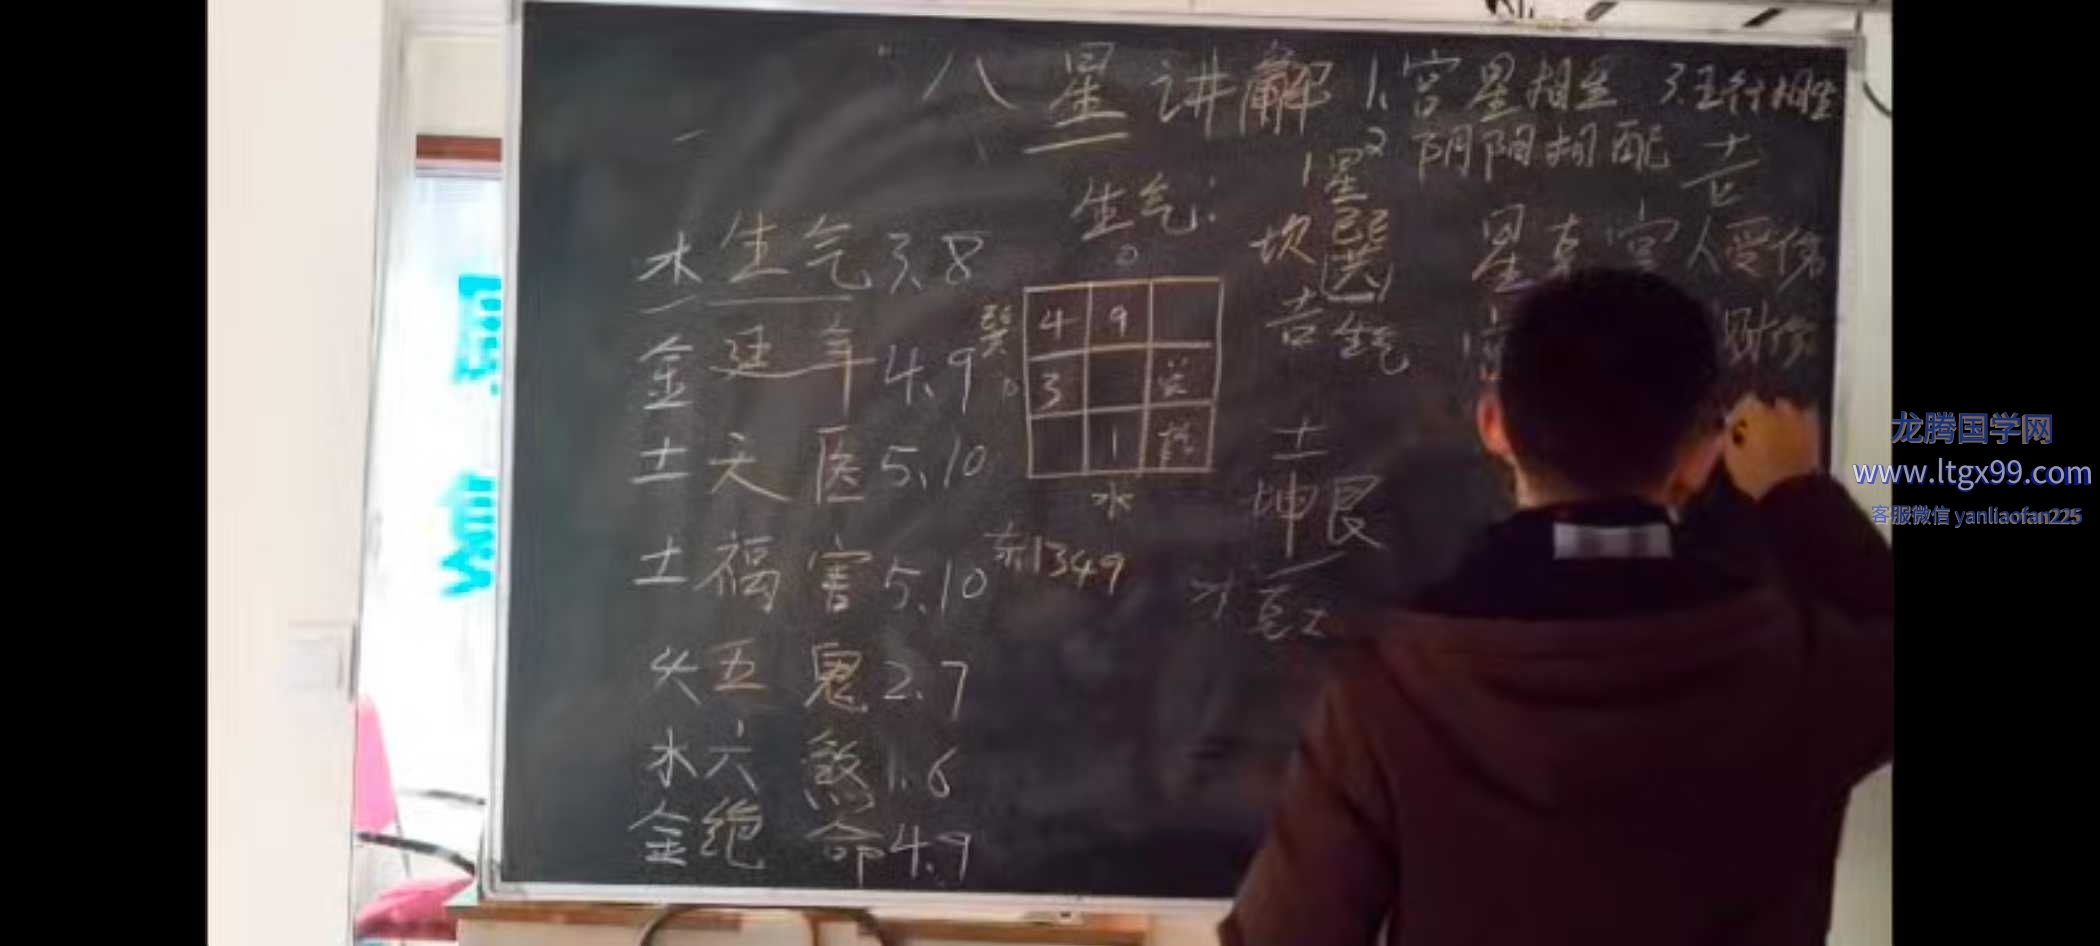 八星讲解 1、宫星相生 3.五行相生
2 阴阳相配
生气:
木 生气 3、8
金 延年 4、9
土 天医 5、10
土 福害 5、10
火 五鬼 2、7
水 六煞 1、6
金 绝命 4、9
4 9
3
1
水
东1349
1 星
坎
吉 生气
土
坤艮
吉
星克宫人受伤
财
龙腾国学网
www.ltgx99.com
客服微信 yanliaofan225